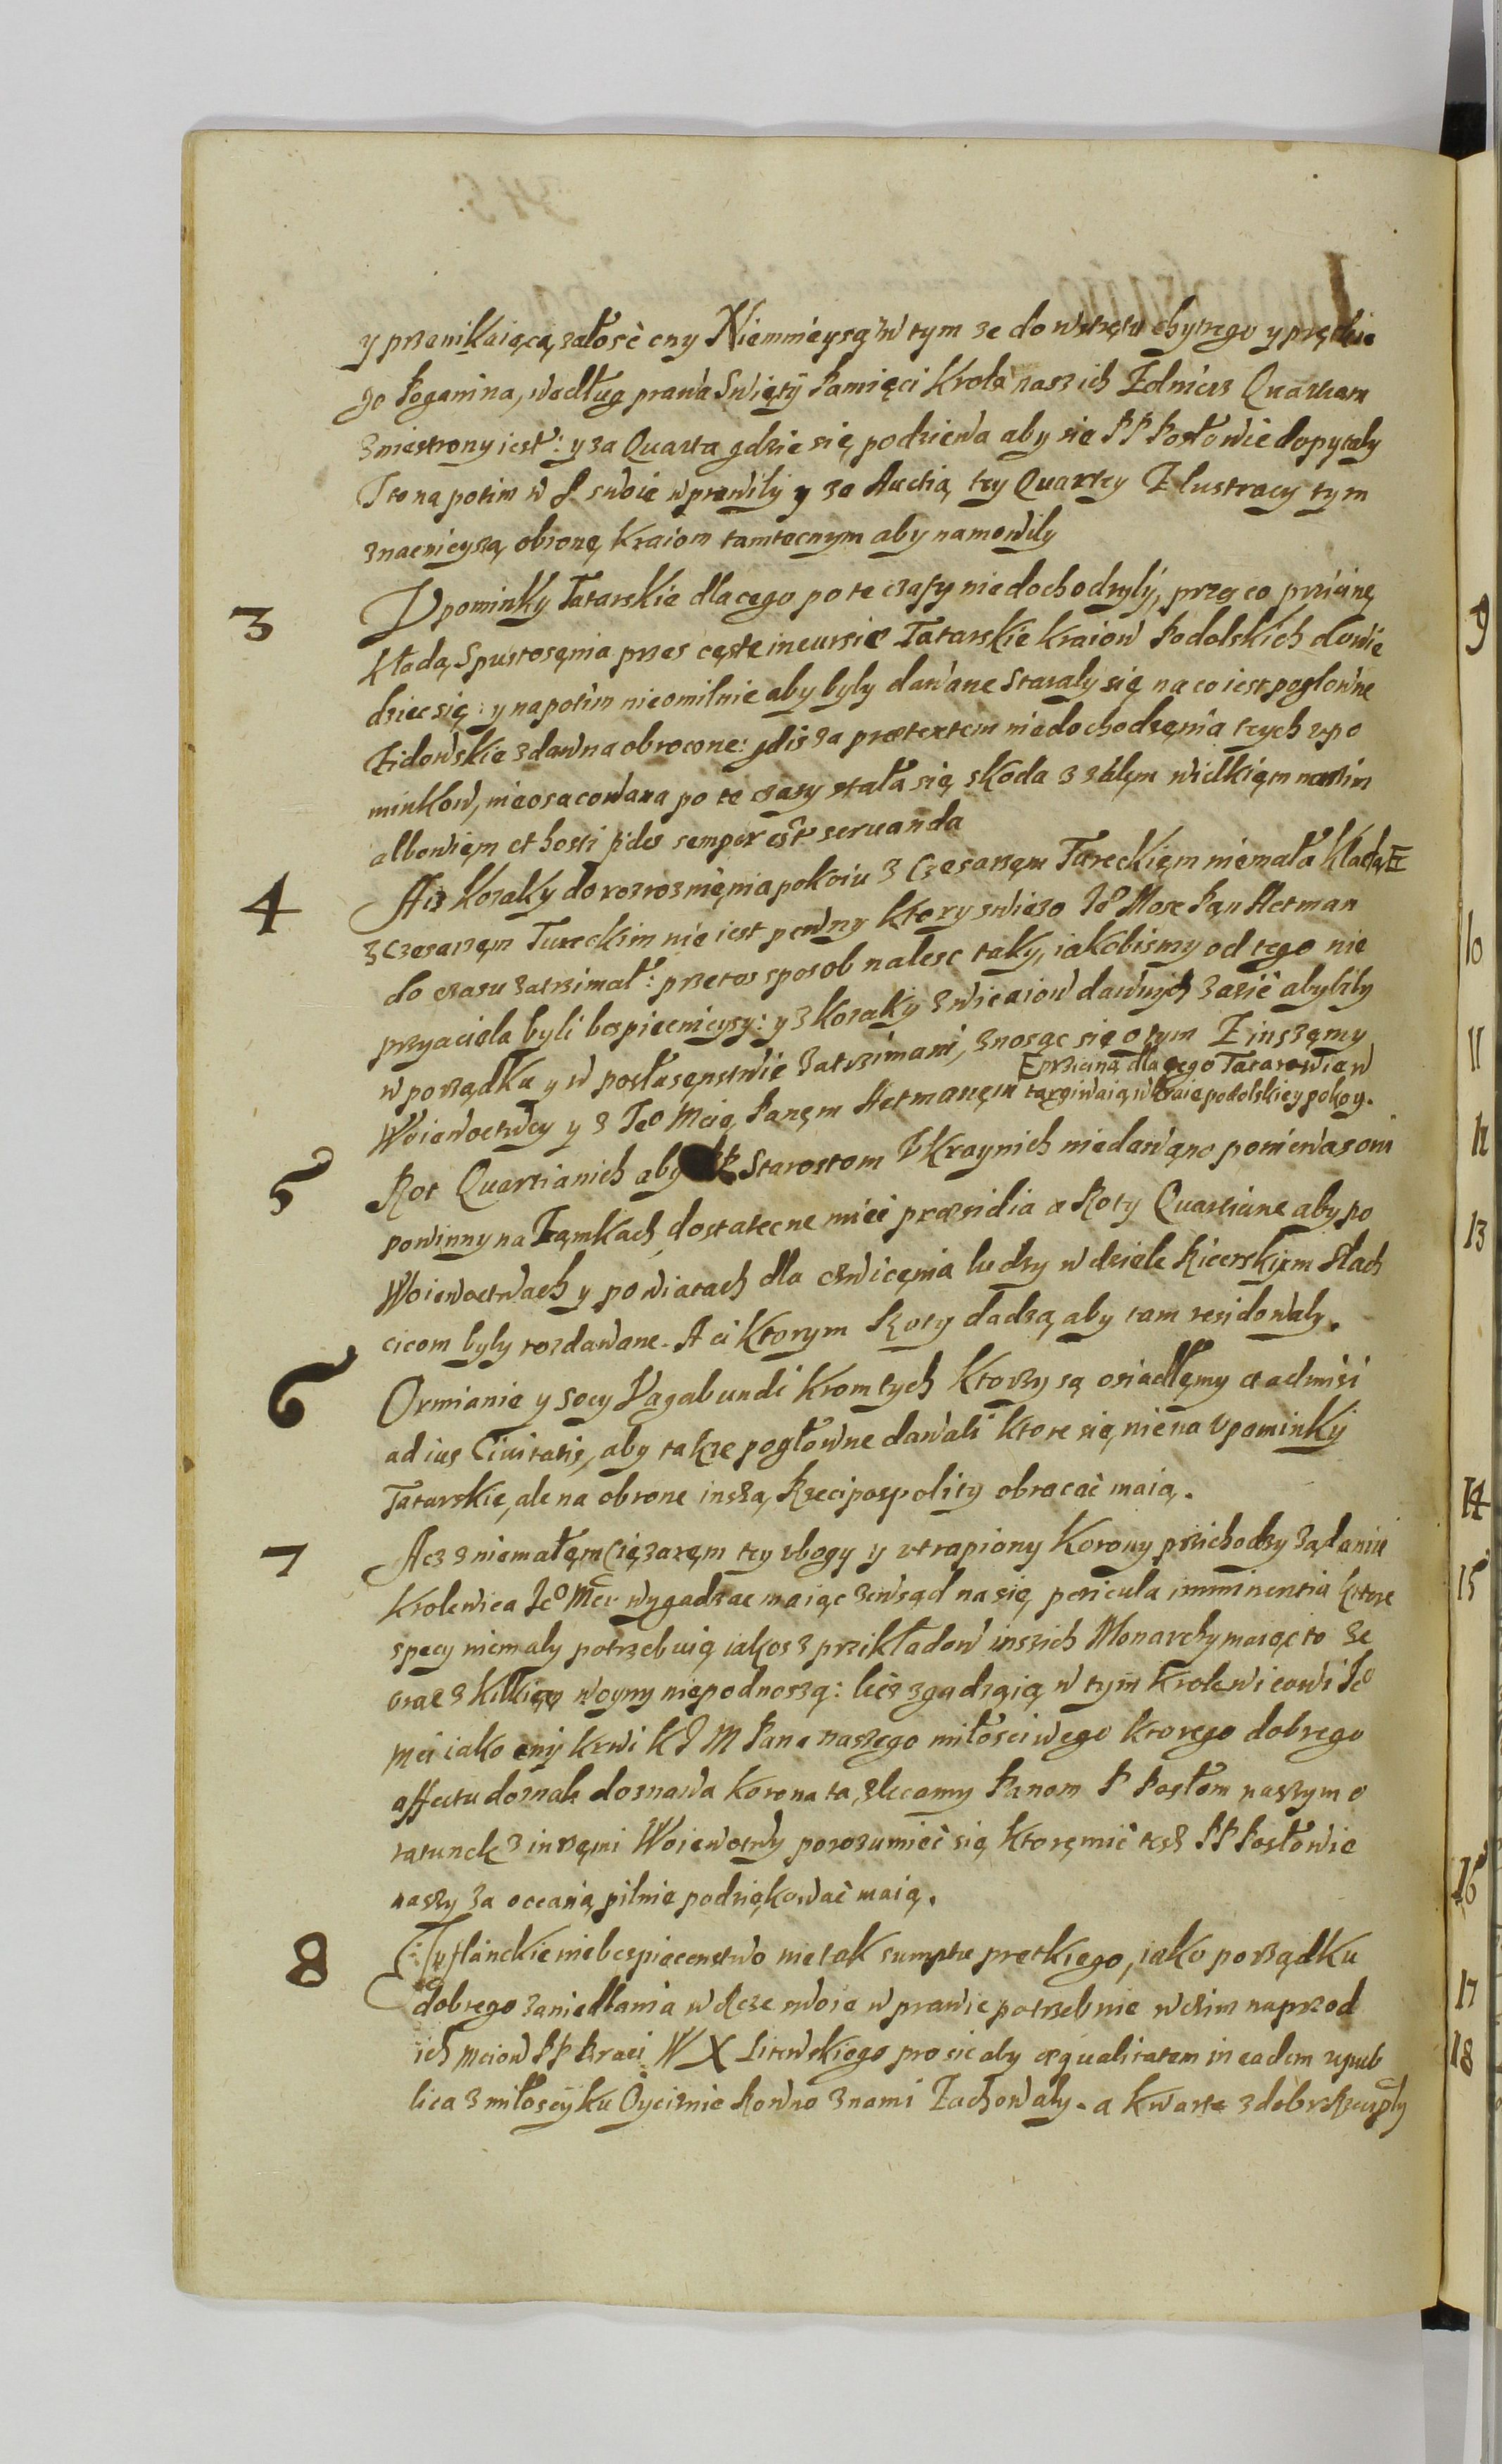 y przenikaiącą załość cny Niemmieyszą w tym ze do wstrętu chytrego y prędkie
go Poganina, według prawa Swięty Pamięci Krola naszich Zolnierz Quartian
zniestrony iest: y za Quarta gdzie się podziewa aby sie PP Posłowie dopytaly
I to na potim w swoie wprawily y ze Auctią tey Quarty Z lustracy tym
znacnieyszą obronę kraiom tamtecnym aby namowily
3 Upominky Tatarskie dlacego po te czasy niedochodzyly, przą co prziczinę
kładą Spustosęnia przes cęste incursie Tatarskie kraiow Podolskich dowie
dziec się: y na potim nieomilnie aby byly dawane Staraly się na co iest pogłowne
Zidowskie zdawna obrocone: gdiż za praetextem niedochodzęnia tych upo
minkow, nieosacowana po te czasy stała się skoda z zalęm wielkięm naszim
albowięm et hosti fides semper est seruanda
4 Aiz Kozaky do rozroznięnia pokoiu z Czesarzęm Tureckięm niemała kładą
z Czesarzęm Tureckim nie iest pewny ktory swiezo Je Mosc Pan Hetman
do czasu zatrzimał: przetos sposob nalesc taky, iakobismy od tego nie
przyaciela byli bespiecnieysy: y z Kozaky zwicaiow dawnych zazić abylily
w porządku y w posłusęnstwie zatrzimani, znosąc się o tym Z inszęmy
Woiewoctwy y z Jeo Mcią Panęm Hetmanęm
prziciną dla cego Tatarowie w
targiwaią w kraie podolskie y pokoy.
5 Rot Quartianich aby PP Starostom Ukraynich niedawano poniewas oni
powinny na Zamkach dostatecne mieć praesidia a Roty Quartiane aby po
Woiewoctwach y powiatach dla cwicęnia ludzy w dziele Ricerskięm Slach
cicom byly rozdawane. A ci ktorym Roty dadzą aby tam residowaly.
6 Ormianie y Socy Vagabundi krom tych ktorzy są osiadłęmy et admisi
ad ius Ciuitatis, aby takze pogłowne dawali ktore się nie na Upominky
Tatarskie, ale na obrone inszą Rzecipospolity obracać maią.
7 Acz z niemałęm Ciężaręm tey ubogy y utrapiony Korony przichodzy ządaniu
Krolewica Jeo Mci wygadzac maiąc zewsąd na się pericula imminentia ktore
specy niemaly potrzebuią iakos z przikładow inszich Monarchy marąc to ze
oraz z kilkięm woyny niepodnoszą: licz zgadzaią w tym Krolewicowi Jeo
Mci iako cny krwi K J M Pana naszego miłosciwego ktorego dobrego
affectu doznała doznawa Korona ta, zlecamy Panom P Posłom naszym o
ratunck z inszęmi Woiewotwy porozumieć się ktoremić tesz PP Posłowie
naszy za oceanią pilnie podziękować maią.
8 Iyflanckie niebespiecenstwo nie tak sumptu prętkiego, iako porządku
dobrego zaniedłania w Rze swoie wprawie potrzebuie w czim naprzod
ich Mciow PP Braci W X Litewskiego prosic aby aequalitatem in eadem repub
lica z miłoscy ku Oyciznie Rowno z nami Zachowaly. a kwarte z dobr Rzeczply
9
10
11
12
13
14
15
16
17
18